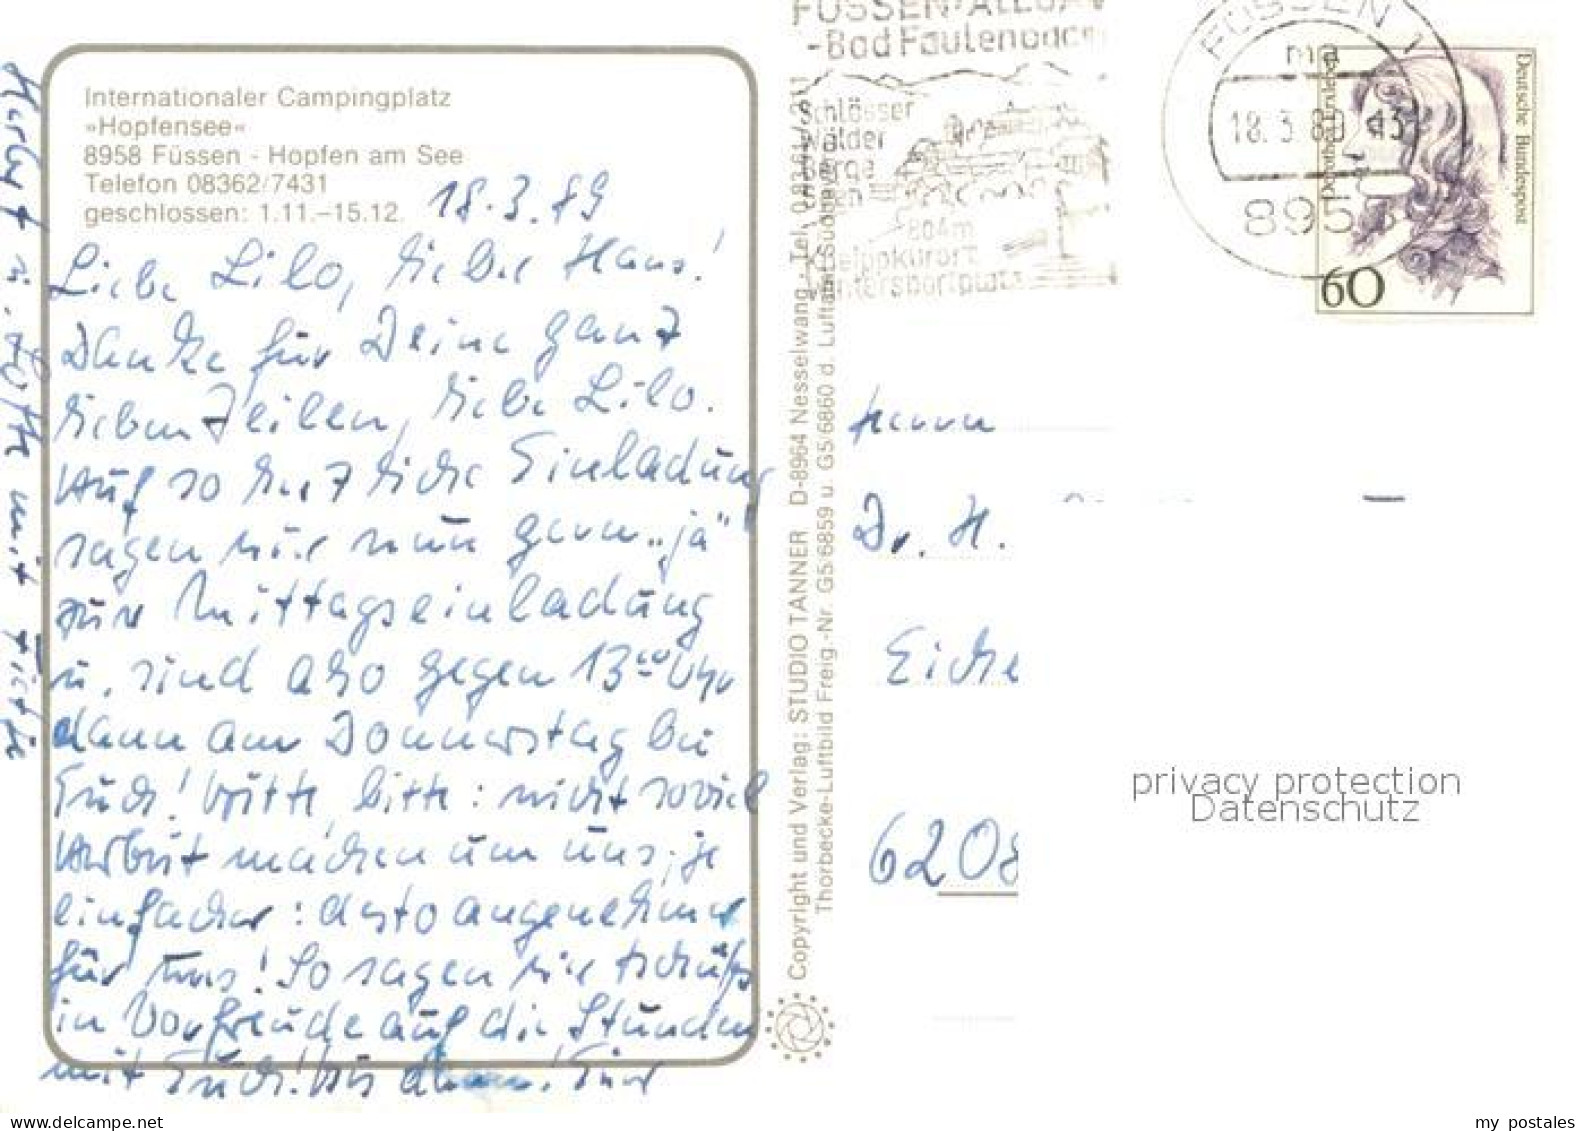 Internationaler Campingplatz
»Hopfensee«
8958 Füssen - Hopfen am See
Telefon 08362/7431
geschlossen: 1.11.–15.12.
18.3.89
Liebe Lilo, lieber Hans!
Danke für Deine ganz
lieben Zeilen, liebe Lilo.
Auf so herzliche Einladung
sagen wir nun gern „ja"
zur Mittagseinladung
u. sind also gegen 13⁰⁰ Uhr
dann am Donnerstag bei
Euch! Bitte, bitte: nicht soviel
Arbeit machen um uns; je
einfacher: desto angenehmer
für uns! So sagen wir tschüß
in Vorfreude auf die Stunden
mit Euch! Bis dann! Eure
mit
Copyright und Verlag: STUDIO TANNER D-8964 Nesselwang Tel. 08361/311
Thorbecke-Luftbild Freig.-Nr. G5/6859 u. G5/6860 d. Luftamt Südbayern
FÜSSEN/ALLGÄU
-Bad Faulenbach
Schlösser
Wälder
Berge
Seen
804m
Kneippkurort
Wintersportplatz
FÜSSEN 1
ma
18.3.89 - 13
8958
Dorothea Erxleben
Deutsche Bundespost
60
Herrn
Dr. H.
Eiche
6208
privacy protection
Datenschutz
my postales